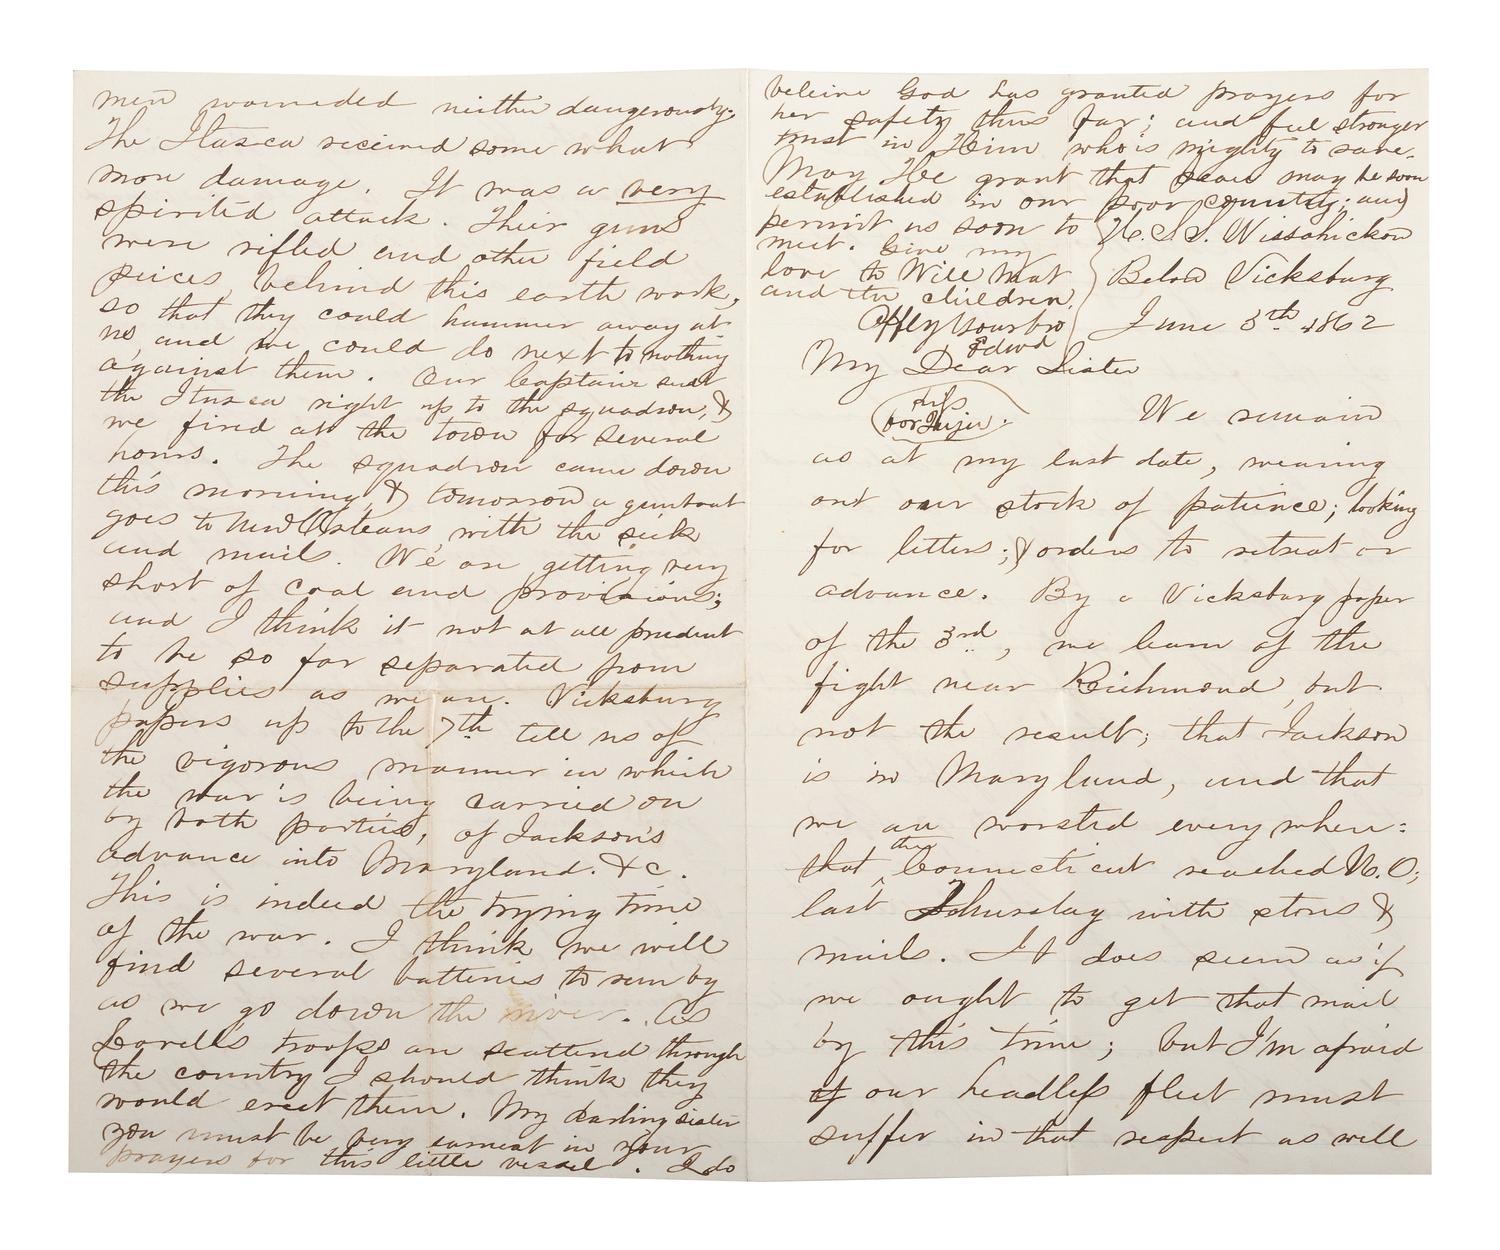 men wounded neither dangerously.
The Itasca received some what
more damage. It was a very
spirited attack. Their guns
were rifled and other field
peices, behind this earth work,
so that they could hammer away at
us, and we could do next to nothing
against them. Our Captain sent
the Itasca right up to the squadron, &
we fired at the town for several
hours. The squadron came down
this morning, & tomorrow a gunboat
goes to New Orleans, with the sick
and mails. We are getting very
short of coal and provisions;
and I think it not at all prudent
to be so far separated from
supplies as we are. Vicksburg
papers up to the 7th tell us of
the vigorous manner in which
the war is being carried on
by both parties, of Jackson's
advance into Maryland. &c.
This is indeed the trying time
of the war. I think we will
find several batteries to run by
as we go down the river. As
Lovell's troops are scattered through
the country I should think they
would erect them. My darling sister
you must be very earnest in your
prayers for this little vessel. I do
beleive God has granted prayers for
her safety thus far; and feel stronger
trust in Him who is mighty to save.
May He grant that peace may be soon
established in our poor country; and
permit us soon to
meet. Give my
love to Will Mat
and the children.
Affly Your bro
Edwd
U.S.S. Wissahickon
Below Vicksburg
June 5th 1862
My Dear Sister
We remain
as at my last date, wearing
out our stock of patience; looking
for letters; & orders to retreat or
advance. By a Vicksburg paper
of the 3rd, we learn of the
fight near Richmond, but
not the result; that Jackson
is in Maryland, and that
we are worsted every where:
that the Connecticut reached N.O;
last Thursday with stores &
mails. It does seem as if
we ought to get that mail
by this time; but I'm afraid
if our headless fleet must
suffer in that respect as well